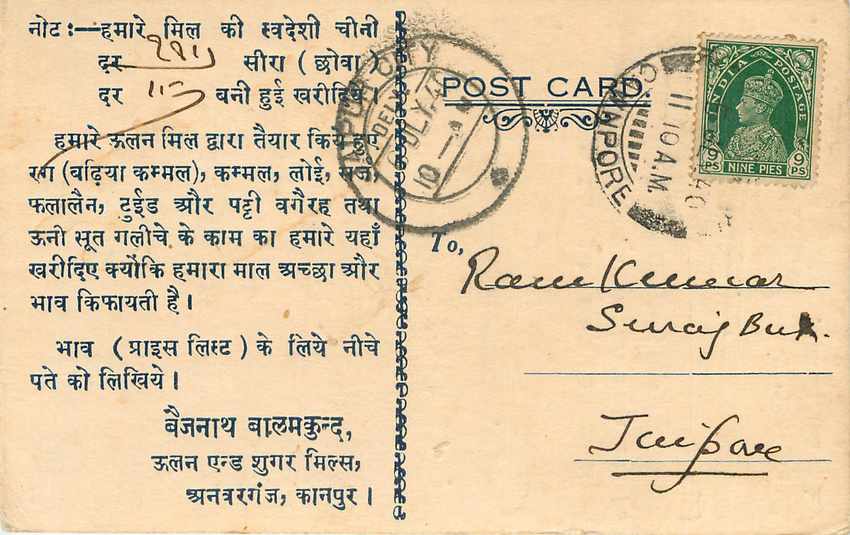 नोट:—हमारे मिल की स्वदेशी चीनी
दर सीरा ( छोवा )
दर बनी हुई खरीदिये।
हमारे ऊलन मिल द्वारा तैयार किये हुए
रग (बढ़िया कम्मल), कम्मल, लोई, सर्ज,
फलालैन, टुईड और पट्टी वगैरह तथा
ऊनी सूत गलीचे के काम का हमारे यहाँ
खरीदिए क्योंकि हमारा माल अच्छा और
भाव किफायती है।
भाव ( प्राइस लिस्ट ) के लिये नीचे
पते को लिखिये।
बैजनाथ बालमकुन्द,
ऊलन एन्ड शुगर मिल्स,
अनवरगंज, कानपुर।
CITY
POST CARD.
CAWNPORE
11 10 A.M.
INDIA POSTAGE
9 PS
NINE PIES
9 PS
To,
Ram Kumar
Suraj Bux.
Jaipore